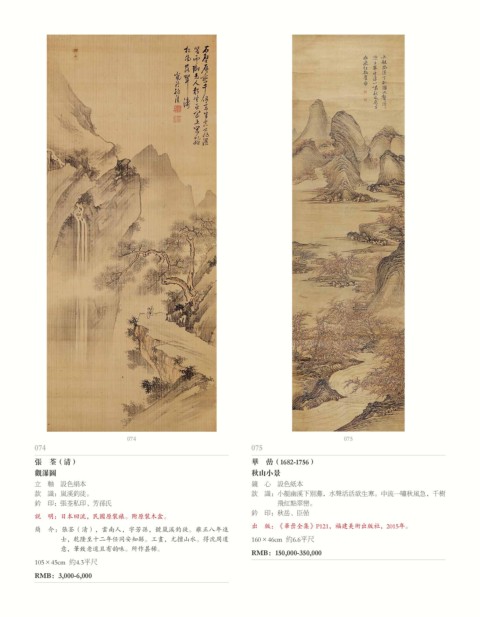 074
075
074
張 荃（清）
觀瀑圖
立 軸 設色絹本
款 識：嵐溪釣徒。
鈐 印：張荃私印、芳孫氏
說 明：日本回流，民國原裝裱。附原裝木盒。
簡 介：張荃（清），雲南人，字芳孫，號嵐溪釣徒。雍正八年進
士，乾隆至十二年任同安知縣。工畫，尤擅山水。得沈周遺
意，筆致老道且有韵味。所作甚稀。
105×45cm 約4.3平尺
RMB：3,000-6,000
075
華 嵒（1682-1756）
秋山小景
鏡 心 設色絹本
款 識：小艇幽溪下別灘，水聲活活欲生寒。中流一嘯秋風急，千樹
飛紅點翠巒。
鈐 印：秋岳、臣嵒
出 版：《華嵒全集》P121，福建美術出版社，2015年。
160×46cm 約6.6平尺
RMB：150,000-350,000